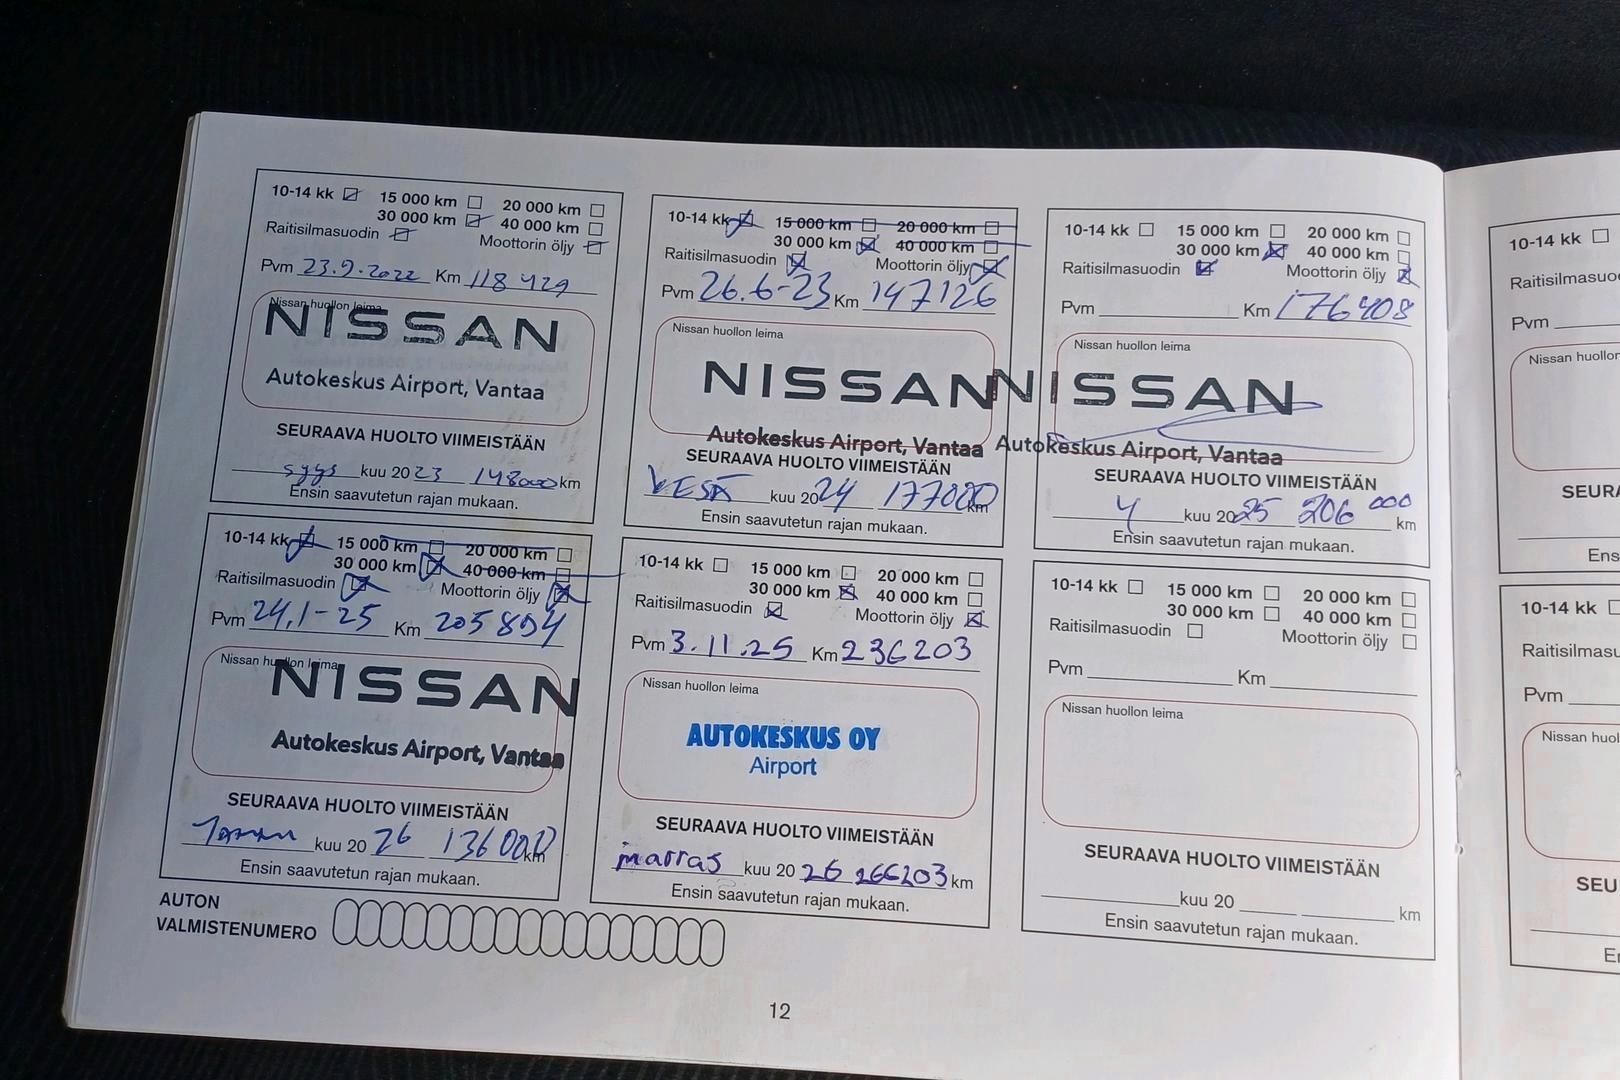 10-14 kk 15 000 km 20 000 km
30 000 km 40 000 km
Raitisilmasuodin Moottorin öljy
Pvm 23.9.2022 Km 118 429
Nissan huollon leima
NISSAN
Autokeskus Airport, Vantaa
SEURAAVA HUOLTO VIIMEISTÄÄN
syys kuu 2023 148000 km
Ensin saavutetun rajan mukaan.
10-14 kk 15 000 km 20 000 km
30 000 km 40 000 km
Raitisilmasuodin Moottorin öljy
Pvm 26.6-23 Km 147126
Nissan huollon leima
NISSAN
Autokeskus Airport, Vantaa
SEURAAVA HUOLTO VIIMEISTÄÄN
KESÄ kuu 2024 177000 km
Ensin saavutetun rajan mukaan.
10-14 kk 15 000 km 20 000 km
30 000 km 40 000 km
Raitisilmasuodin Moottorin öljy
Pvm Km 176408
Nissan huollon leima
NISSAN
Autokeskus Airport, Vantaa
SEURAAVA HUOLTO VIIMEISTÄÄN
4 kuu 2025 206 000 km
Ensin saavutetun rajan mukaan.
10-14 kk 15 000 km 20 000 km
30 000 km 40 000 km
Raitisilmasuodin Moottorin öljy
Pvm 24.1-25 Km 205894
Nissan huollon leima
NISSAN
Autokeskus Airport, Vantaa
SEURAAVA HUOLTO VIIMEISTÄÄN
kuu 2026 136000 km
Ensin saavutetun rajan mukaan.
10-14 kk 15 000 km 20 000 km
30 000 km 40 000 km
Raitisilmasuodin Moottorin öljy
Pvm 3.11.25 Km 236203
Nissan huollon leima
AUTOKESKUS OY
Airport
SEURAAVA HUOLTO VIIMEISTÄÄN
marras kuu 20 26 266203 km
Ensin saavutetun rajan mukaan.
10-14 kk 15 000 km 20 000 km
30 000 km 40 000 km
Raitisilmasuodin Moottorin öljy
Pvm Km
Nissan huollon leima
SEURAAVA HUOLTO VIIMEISTÄÄN
kuu 20 km
Ensin saavutetun rajan mukaan.
AUTON
VALMISTENUMERO
12
10-14 kk
Raitisilmasuo
Pvm
Nissan huollon
SEURA
Ens
10-14 kk
Raitisilmasu
Pvm
Nissan huol
SEU
Er